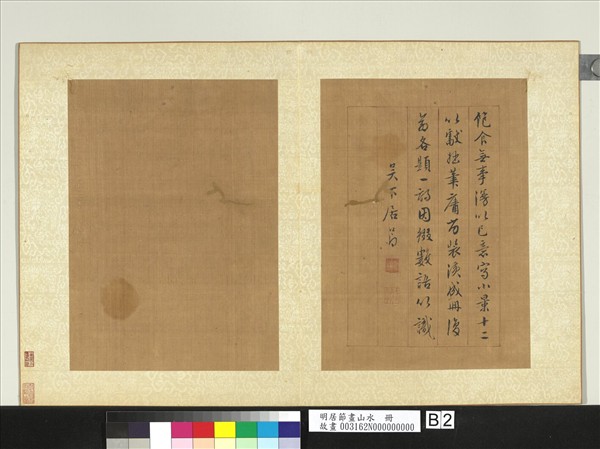 飽食無事漫以己意寫小景十二
以 拙 為裝潢成冊復
為各題一詩因綴數語以識
吳下居節
明居節畫山水　冊
故畫 003162N000000000
B2